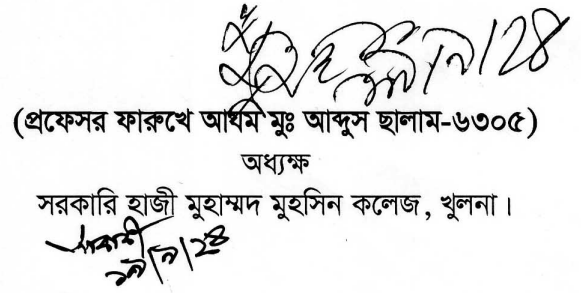 ১৯/৯/২৪
(প্রফেসর ফারুখে আযম মুঃ আব্দুস ছালাম-৬৩০৫)
অধ্যক্ষ
সরকারি হাজী মুহাম্মদ মুহসিন কলেজ, খুলনা।
১৯/৯/২৪